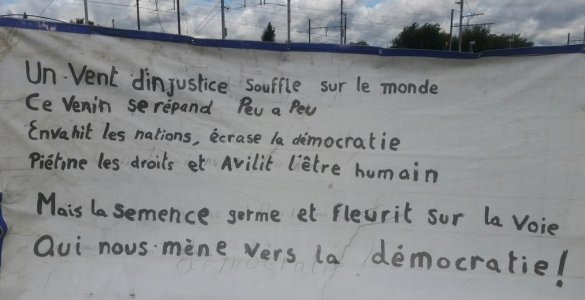 Un Vent d'injustice souffle sur le monde
Ce Venin se répand Peu a Peu
Envahit les nations, écrase la démocratie
Piétine les droits et Avilit l'être humain
Mais la semence germe et fleurit sur la voie
Qui nous mène vers la démocratie!